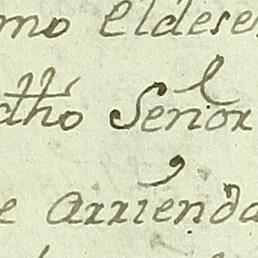 mo Eldese
dho Señor
e Arrienda